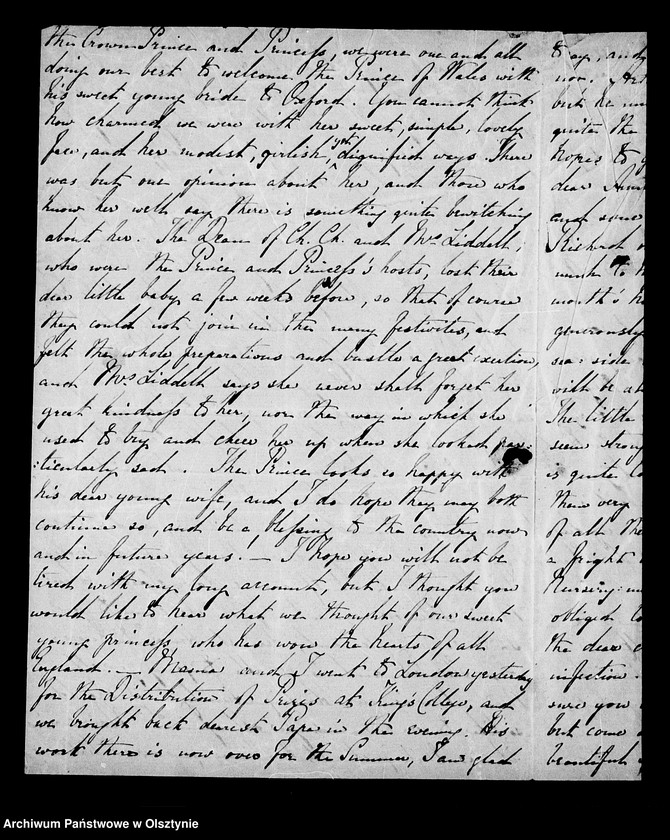 the Crown Prince and Princess, we were one and all
doing our best to welcome the Prince of Wales with
his sweet young bride to Oxford. You cannot think
how charmed we were with her sweet, simple, lovely
face, and her modest, girlish, yet dignified ways. There
was but one opinion about her, and those who
know her well say there is something quite bewitching
about her. The Dean of Ch. Ch. and Mrs Liddell,
who were the Prince and Princess's hosts, lost their
dear little baby a few weeks before, so that of course
they could not join in the many festivities, and
felt the whole preparations and bustle a great exertion,
and Mrs Liddell says she never shall forget her
great kindness to her, nor the way in which she
used to try and cheer her up when she looked par:
:ticularly sad. The Prince looks so happy with
his dear young wife, and I do hope they may both
continue so, and be a blessing to the country now
and in future years. — I hope you will not be
tired with my long account, but I thought you
would like to hear what we thought of our sweet
young princess, who has won the hearts of all
England. — Mama and I went to London yesterday
for the Distribution of Prizes at King's College, and
we brought back dearest Papa in the evening. His
work there is now over for the Summer, I am glad
to say, and
nor.
but he
quite the
hopes to
dear
and
Richard
month's
generously
sea: side
will be
The little
seem strong
is quite
them very
of all the
a fright
Nursery:
obliged
the dear
infection.
sure you
but come
beautiful
Archiwum Państwowe w Olsztynie